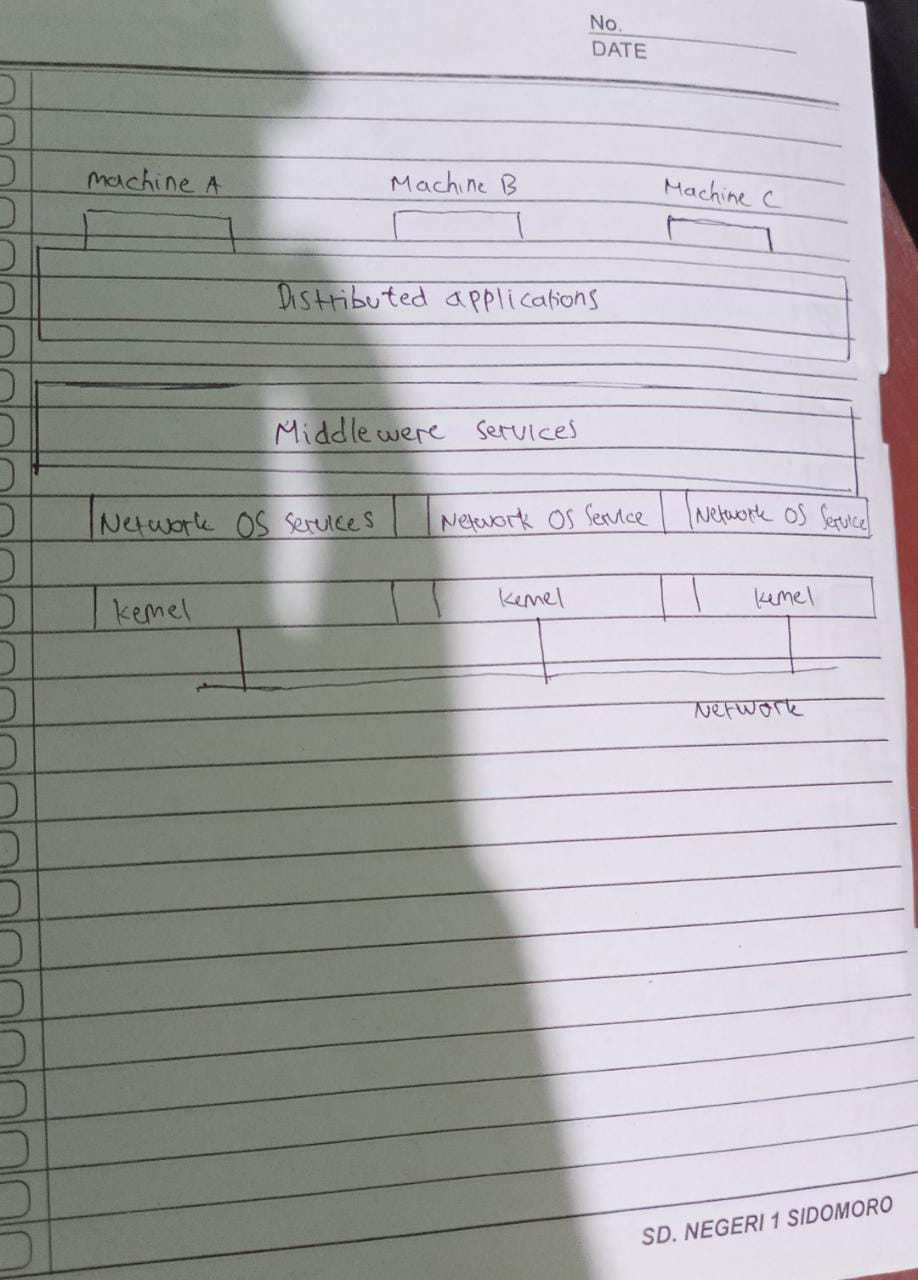 No.
DATE
Machine A Machine B Machine C
Distributed applications
Middlewere services
Network OS Services Network OS Service Network OS Service
Kernel Kernel Kernel
Network
SD. NEGERI 1 SIDOMORO